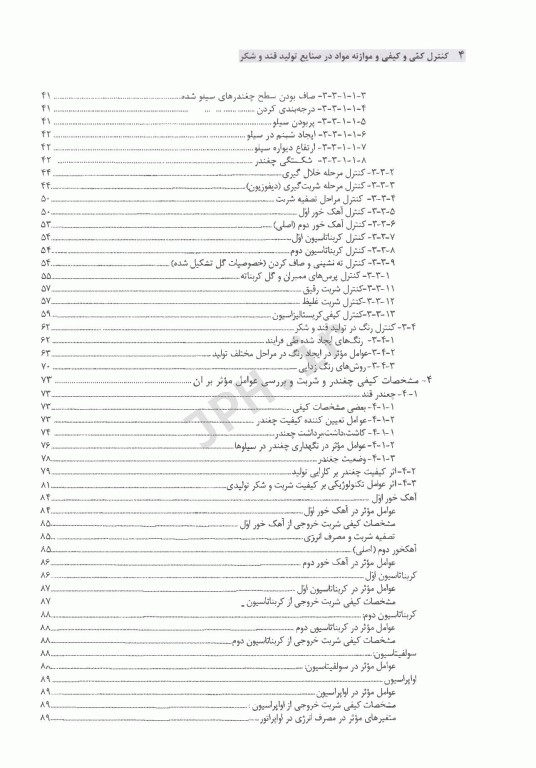 ۴ کنترل کمّی و کیفی و موازنه مواد در صنایع تولید قند و شکر
۳-۳-۱-۱-۳- صاف بودن سطح چغندرهای سیلو شده ۴۱
۳-۳-۱-۱-۴- درجه‌بندی کردن ۴۱
۳-۳-۱-۱-۵- پربودن سیلو ۴۱
۳-۳-۱-۱-۶- ایجاد شبنم در سیلو ۴۲
۳-۳-۱-۱-۷- ارتفاع دیواره سیلو ۴۲
۳-۳-۱-۱-۸- شکستگی چغندر ۴۲
۳-۳-۲- کنترل مرحله خلال گیری ۴۴
۳-۳-۳- کنترل مرحله شربت‌گیری (دیفوزیون) ۴۴
۳-۳-۴- کنترل مراحل تصفیه شربت ۵۰
۳-۳-۵- کنترل آهک خور اوّل ۵۰
۳-۳-۶- کنترل آهک خور دوم (اصلی) ۵۳
۳-۳-۷- کنترل کربناتاسیون اوّل ۵۴
۳-۳-۸- کنترل کربناتاسیون دوم ۵۴
۳-۳-۹- کنترل ته نشینی و صاف کردن (خصوصیات گل تشکیل شده) ۵۴
۳-۳-۱۰- کنترل پرس‌های ممبران و گل کربناته ۵۵
۳-۳-۱۱-کنترل شربت رقیق ۵۷
۳-۳-۱۲-کنترل شربت غلیظ ۵۷
۳-۳-۱۳-کنترل کیفی‌کریستالیزاسیون ۵۹
۳-۴- کنترل رنگ در تولید قند و شکر ۶۲
۳-۴-۱- رنگ‌های ایجاد شده طی فرایند ۶۲
۳-۴-۲-عوامل مؤثر در ایجاد رنگ در مراحل مختلف تولید ۶۳
۳-۴-۳-روش‌های رنگ زدایی ۷۰
۴- مشخصات کیفی چغندر و شربت و بررسی عوامل مؤثر بر آن ۷۳
۴-۱- چغندر قند ۷۳
۴-۱-۱- بعضی مشخصات کیفی ۷۳
۴-۱-۲- عوامل تعیین کننده کیفیت چغندر ۷۳
۴-۱-۱- کاشت،داشت،برداشت چغندر ۷۴
۴-۱-۲-عوامل مؤثر در نگهداری چغندر در سیلوها ۷۶
۴-۱-۳- وضعیت چغندر ۷۸
۴-۲-اثر کیفیت چغندر بر کارایی تولید ۷۹
۴-۳-اثر عوامل تکنولوژیکی بر کیفیت شربت و شکر تولیدی ۸۱
آهک خور اوّل ۸۴
عوامل مؤثر در آهک خور اوّل ۸۴
مشخصات کیفی شربت خروجی از آهک خور اوّل ۸۵
تصفیه شربت و مصرف انرژی ۸۵
آهکخور دوم (اصلی) ۸۵
عوامل مؤثر در آهک خور دوم ۸۶
کربناتاسیون اوّل ۸۶
عوامل مؤثر در کربناتاسیون اوّل ۸۷
مشخصات کیفی شربت خروجی از کربناتاسیون ۸۷
کربناتاسیون دوم: ۸۸
عوامل مؤثر در کربناتاسیون دوم ۸۸
مشخصات کیفی شربت خروجی از کربناتاسیون دوم ۸۸
سولفیتاسیون: ۸۸
عوامل مؤثر در سولفیتاسیون: ۸۰
اواپراسیون ۸۹
عوامل مؤثر در اواپراسیون ۸۹
مشخصات کیفی شربت خروجی از اواپراسیون: ۸۹
متغیرهای مؤثر در مصرف انرژی در اواپراتور ۸۹